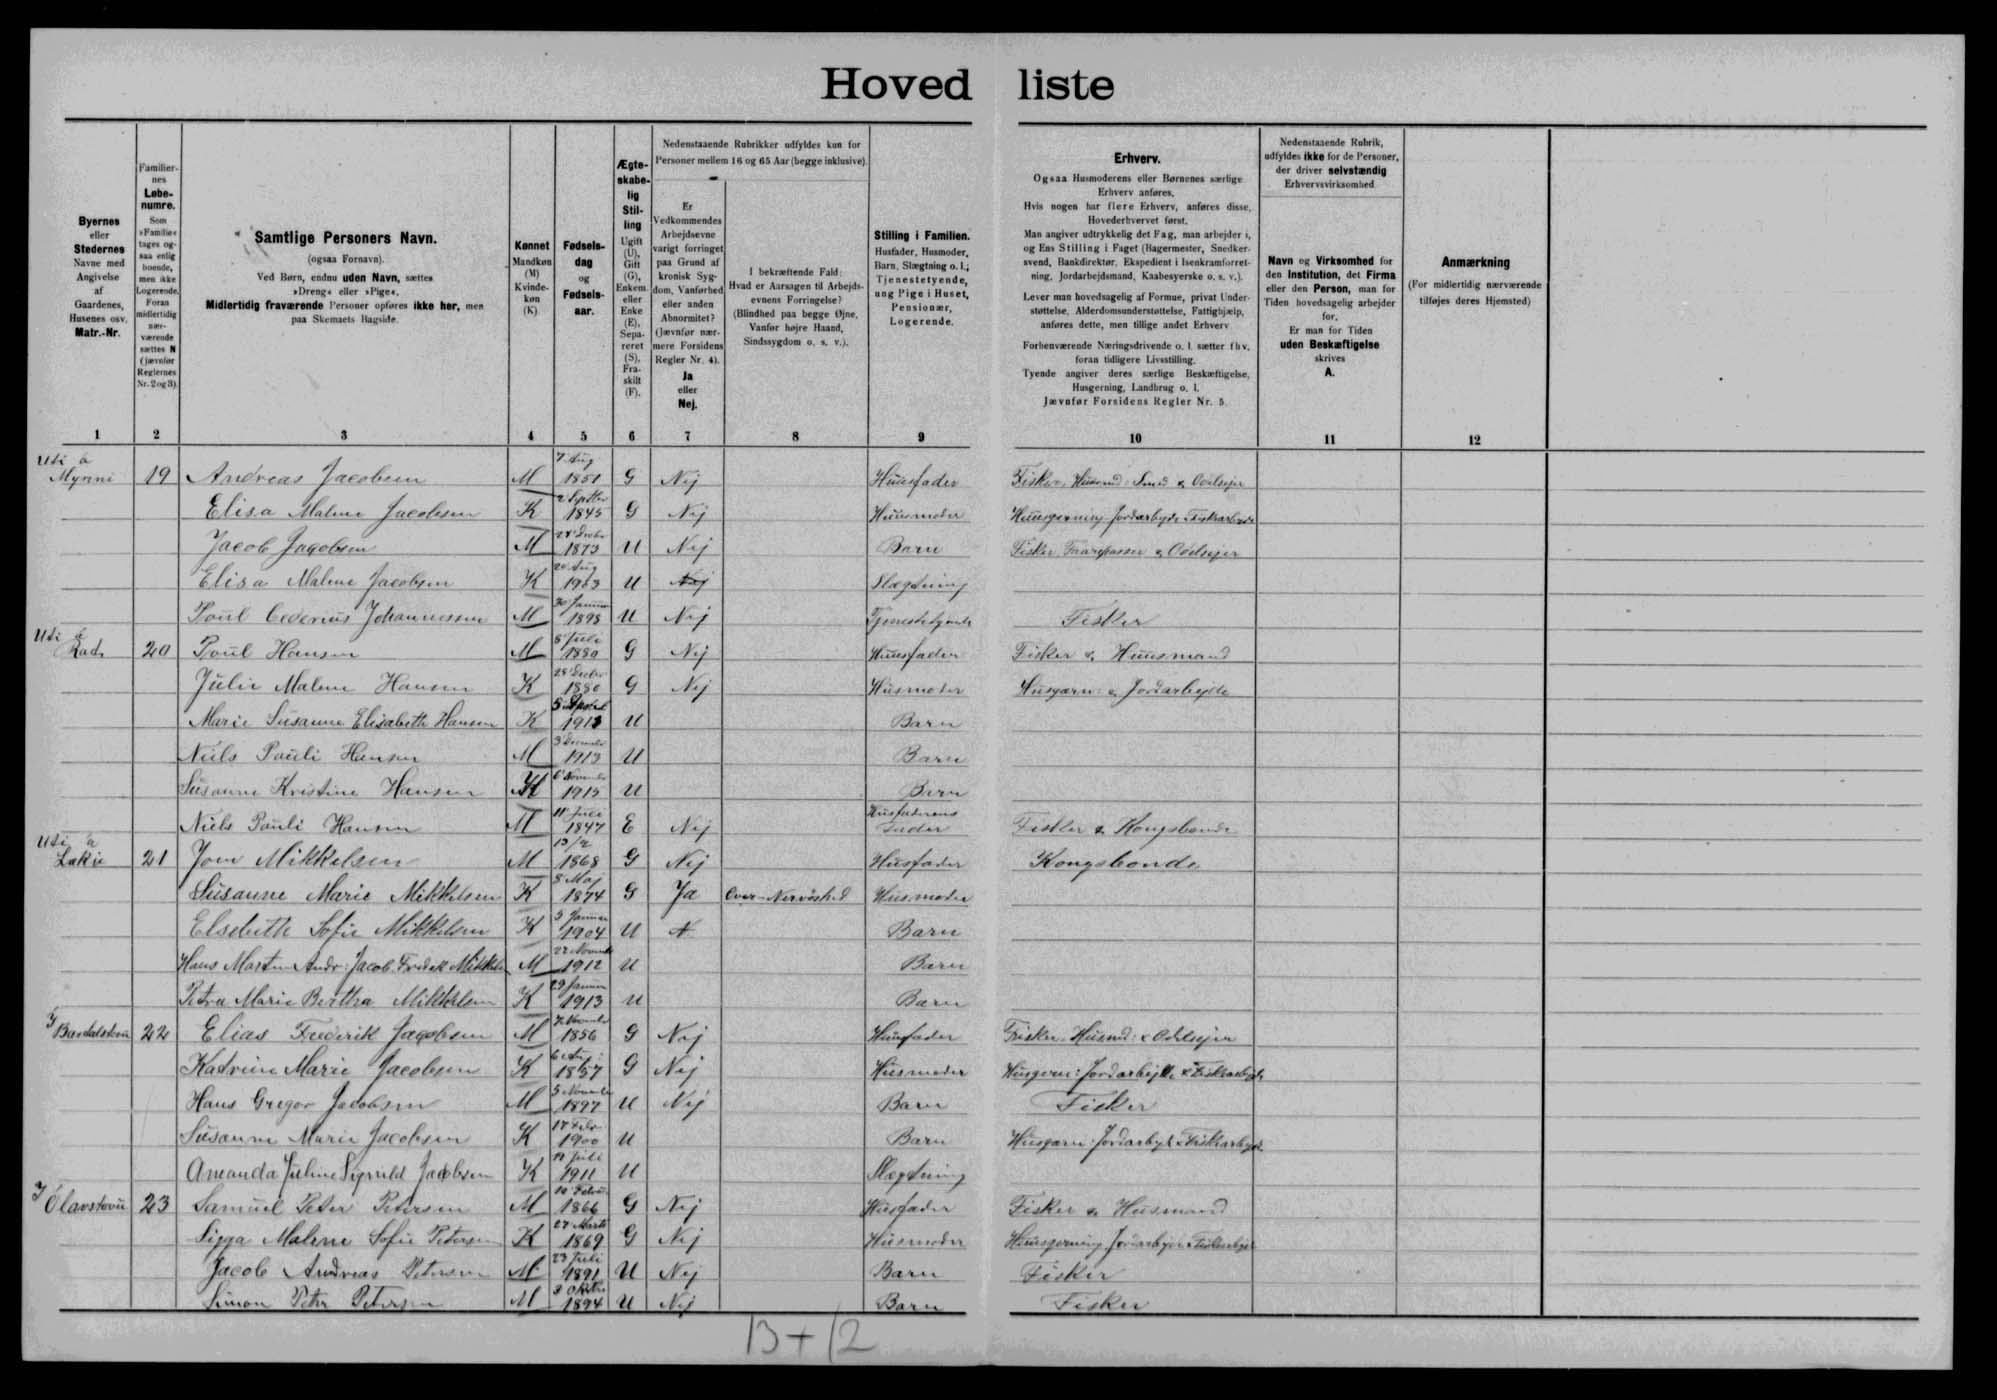 Hoved liste
Byernes
eller
Stedernes
Navne med
Angivelse
af
Gaardenes,
Husenes osv.
Matr.-Nr.
Familier-
nes
Løbe-
numre.
Som
»Familie«
tages og-
saa enlig
boende,
men ikke
Logerende.
Foran
midlertidig
nær-
værende
sættes N
(jævnfør
Reglernes
Nr. 2 og 3).
Samtlige Personers Navn.
(ogsaa Fornavn).
Ved Børn, endnu uden Navn, sættes
»Dreng« eller »Pige«.
Midlertidig fraværende Personer opføres ikke her, men
paa Skemaets Bagside.
Kønnet
Mandkøn
(M)
Kvinde-
køn
(K)
Fødsels-
dag
og
Fødsels-
aar.
Ægte-
skabe-
lig
Stil-
ling
Ugift
(U),
Gift
(G),
Enkem.
eller
Enke
(E),
Sepa-
reret
(S),
Fra-
skilt
(F).
Nedenstaaende Rubrikker udfyldes kun for
Personer mellem 16 og 65 Aar (begge inklusive).
Er
Vedkommendes
Arbejdsevne
varigt forringet
paa Grund af
kronisk Syg-
dom, Vanførhed
eller anden
Abnormitet?
(Jævnfør nær-
mere Forsidens
Regler Nr. 4).
Ja
eller
Nej.
I bekræftende Fald:
Hvad er Aarsagen til Arbejds-
evnens Forringelse?
(Blindhed paa begge Øjne,
Vanfør højre Haand,
Sindssygdom o. s. v.).
Stilling i Familien.
Husfader, Husmoder,
Barn, Slægtning o. l.;
Tjenestetyende,
ung Pige i Huset,
Pensionær,
Logerende.
Erhverv.
Ogsaa Husmoderens eller Børnenes særlige
Erhverv anføres.
Hvis nogen har flere Erhverv, anføres disse,
Hovederhvervet først.
Man angiver udtrykkelig det Fag, man arbejder i,
og Ens Stilling i Faget (Bagermester, Snedker-
svend, Bankdirektør, Ekspedient i Isenkramforret-
ning, Jordarbejdsmand, Kaabesyerske o. s. v.).
Lever man hovedsagelig af Formue, privat Under-
støttelse, Alderdomsunderstøttelse, Fattighjælp,
anføres dette, men tillige andet Erhverv
Forhenværende Næringsdrivende o. l. sætter fhv.
foran tidligere Livsstilling.
Tyende angiver deres særlige Beskæftigelse,
Husgerning, Landbrug o. l.
Jævnfør Forsidens Regler Nr. 5.
Nedenstaaende Rubrik,
udfyldes ikke for de Personer,
der driver selvstændig
Erhvervsvirksomhed
Navn og Virksomhed for
den Institution, det Firma
eller den Person, man for
Tiden hovedsagelig arbejder
for.
Er man for Tiden
uden Beskæftigelse
skrives
A.
Anmærkning
(For midlertidig nærværende
tilføjes deres Hjemsted)
1 2 3 4 5 6 7 8 9 10 11 12
Uti á Myrini 19 Andreas Jacobsen M 7 Aug 1851 G Nej Huusfader Fisker, Husmd: Smed & Odelsejer
Elisa Malene Jacobsen K 2 Septbr 1845 G Nej Huusmoder Huusgerning Jordarbejde & Fiskarbejde
Jacob Jacobsen M 1873 U Nej Barn Fisker, & Odelsejer
Elisa Malene Jacobsen K Aug 1903 U Nej Slægtning
Poul Johannessen M 30 Januar 1898 U Nej Tjenestetyende Fisker
Uti á 20 Poul Hansen M 8 Juli 1880 G Nej Huusfader Fisker & Huusmand
Julie Malene Hansen K 1880 G Nej Husmoder Husgern: & Jordarbejde
Marie Susanne Elisabeth Hansen K U Barn
Niels Pauli Hansen M 3 December 1913 U Barn
Susanne Kristine Hansen K 6 Novembr 1915 U Barn
Niels Pauli Hansen M 11 Juli 1847 E Nej Husfaderens Fader Fisker & Kongsbonde
Uti á 21 Joen Mikkelsen M 13/2 1868 G Nej Husfader Kongsbonde
Susanne Marie Mikkelsen K 8 Maj 1874 G Ja Over-Nervøsitet Husmoder
Elsebeth Sofie Mikkelsen K 3 Januar 1904 U Barn
Hans Morten Andr: Jacob Fredrik Mikkels M 22 Novembr 1912 U Barn
Petra Marie Bertha Mikkelsen K 29 Januar 1913 U Barn
Y 22 Elias Frederik Jacobsen M 1856 G Nej Huusfader Fisker, Husmd: & Odelsejer
Katrine Marie Jacobsen K 6 Aug 1857 G Nej Husmoder Husgern: Jordarbejde & Fiskarbejde
Hans Gregor Jacobsen M 5 Novembr 1897 U Nej Barn Fisker
Susanne Marie Jacobsen K 17 Febr 1900 U Barn Husgern: Jordarbejd & Fiskarbejde
Amanda Juline Sigvild Jacobsen K 11 Juli 1911 U Slægtning
Y Ólavstovu 23 Samuel Peter Petersen M 10 Febru 1866 G Nej Husfader Fisker & Husmand
Sigga Malene Sofie Petersen K 27 Marts 1869 G Nej Husmoder Huusgerning Jordarbejde & Fiskarbejde
Jacob Andreas Petersen M 23 Juli 1891 U Nej Barn Fisker
Simon Peter Petersen M 3 Oktbr 1894 U Nej Barn Fisker
13 + 12